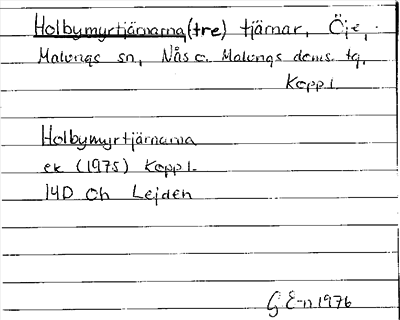 Holbymyrtjärnarna (tre) tjärnar, Öje,
Malungs sn, Nås o. Malungs doms. tg,
Kopp l.
Holbymyrtjärnarna
ek (1975) Kopp l.
14D Ch Lejden
G E-n 1976